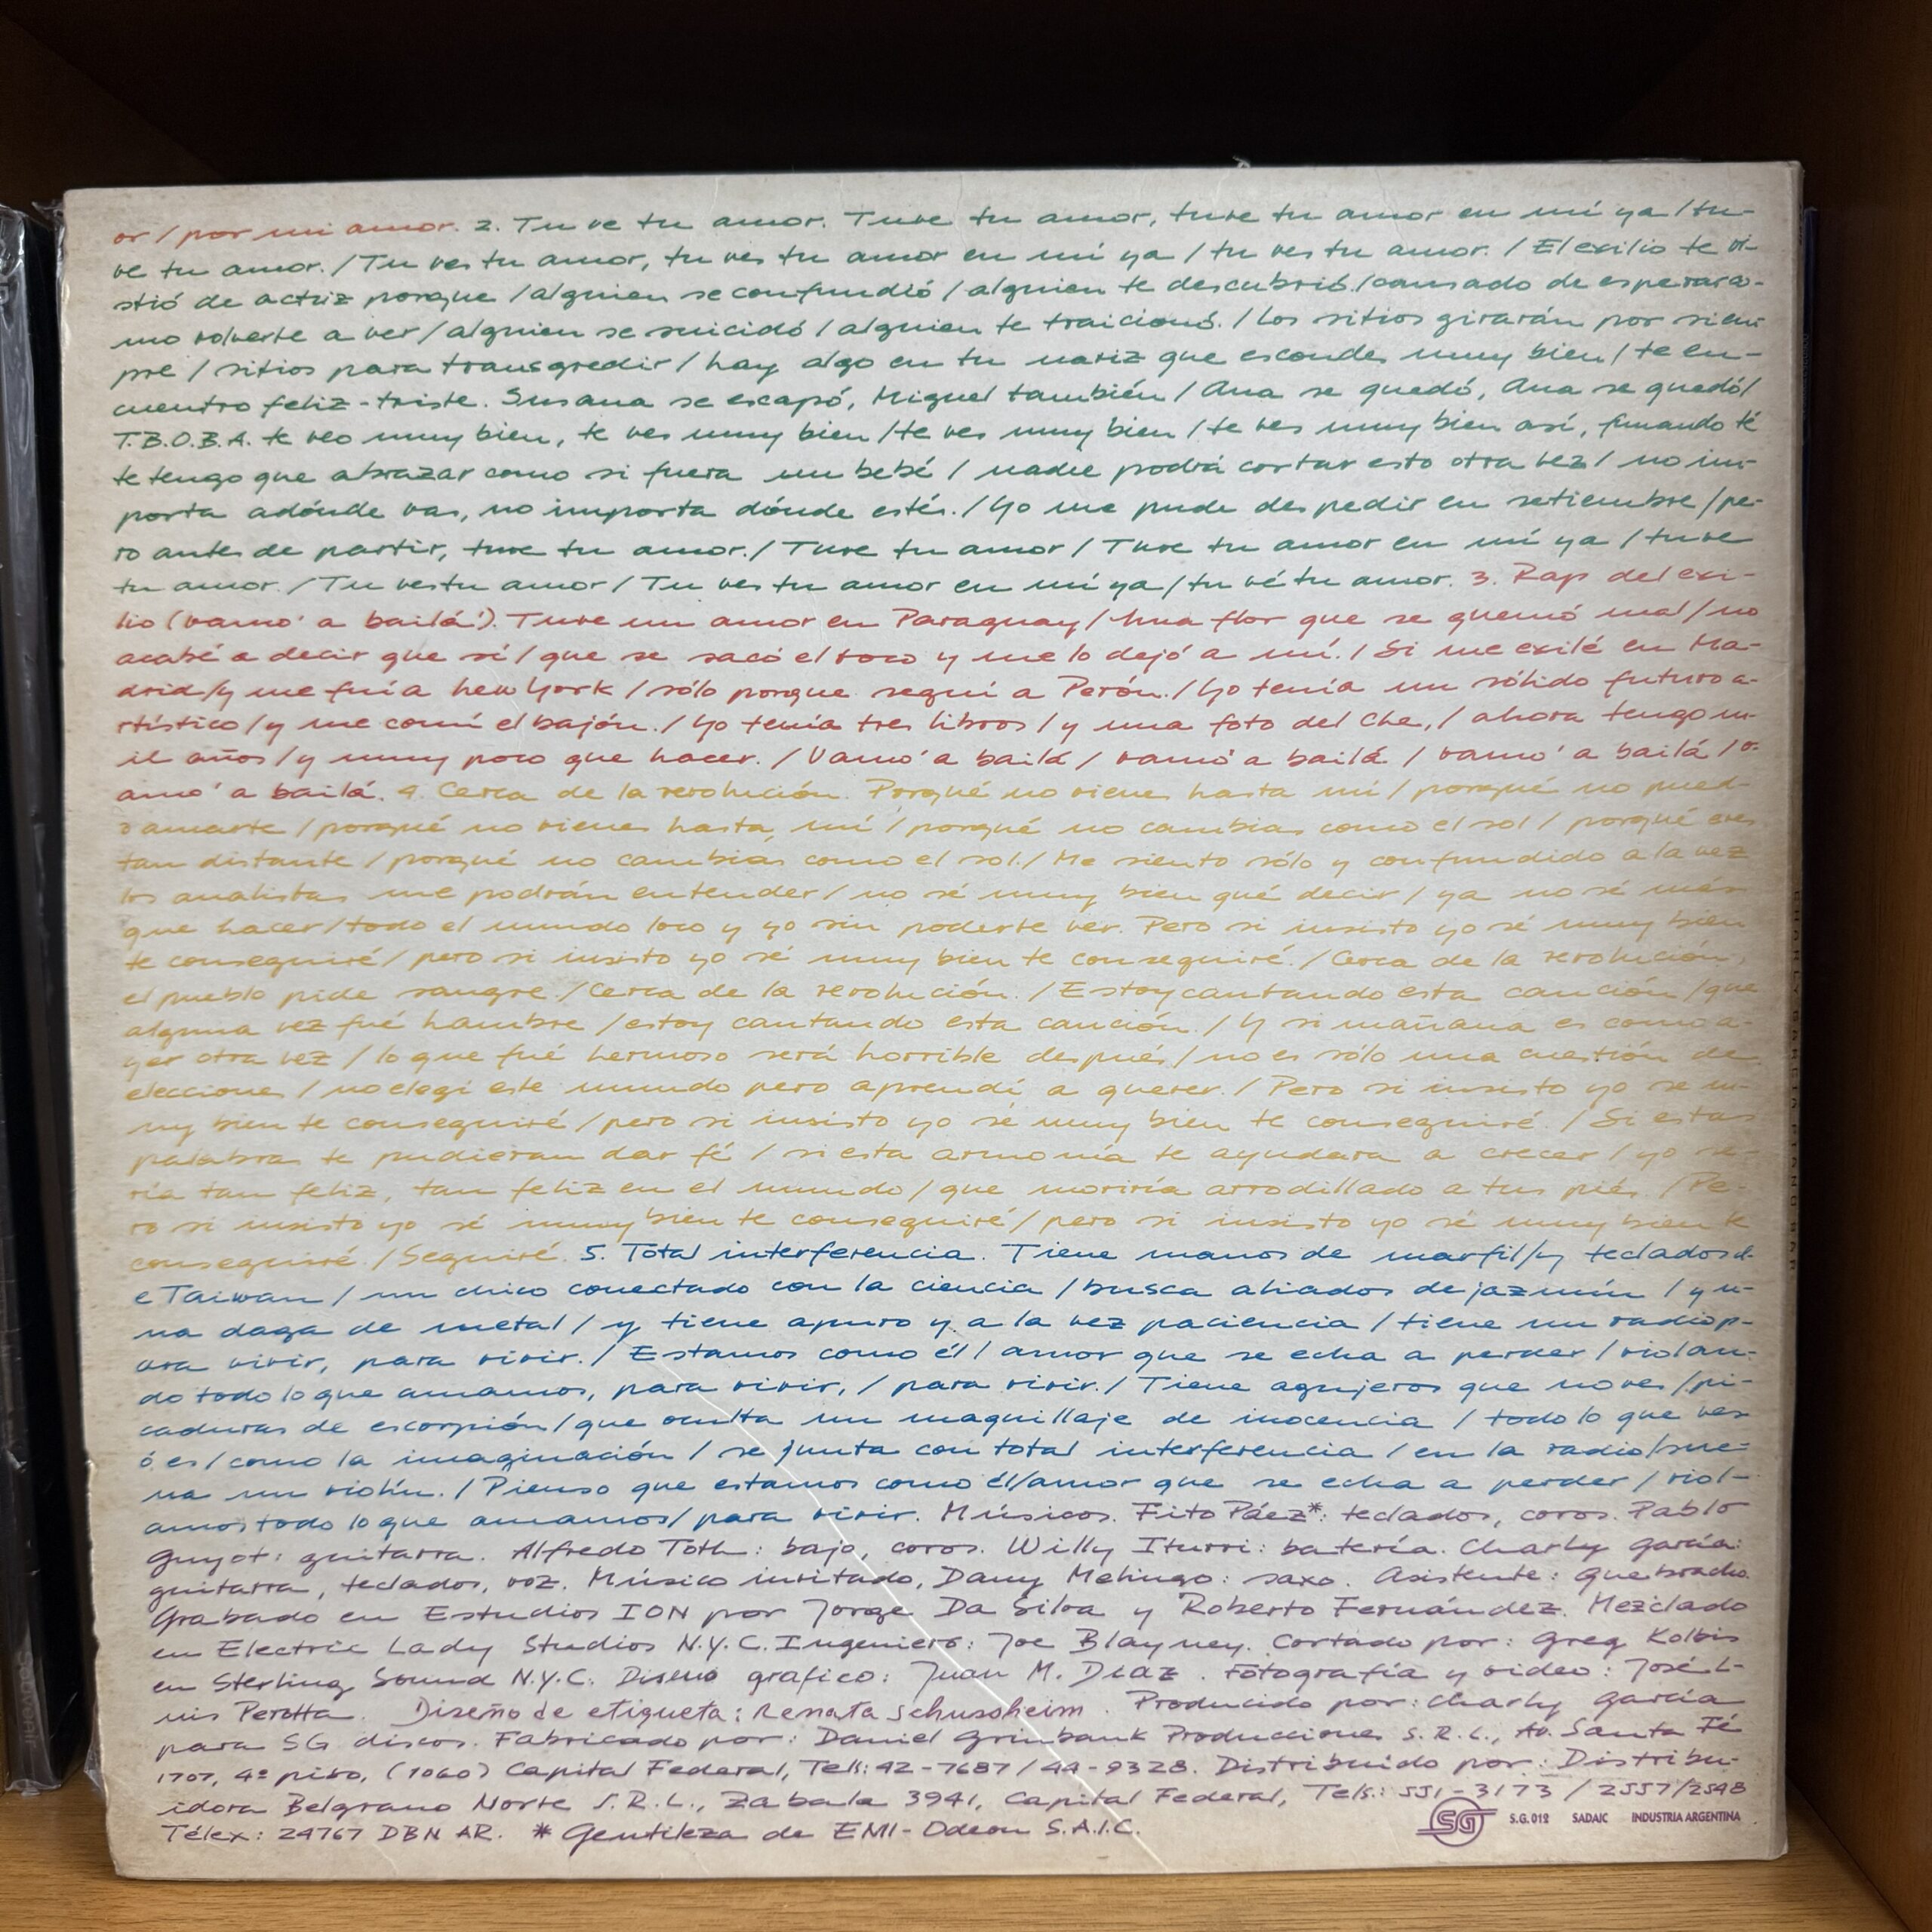 or / por mi amor. 2. Tu ve tu amor. Tuve tu amor, tuve tu amor en mí ya / tu-
ve tu amor. / Tu ves tu amor, tu ves tu amor en mí ya / tu ves tu amor. / El exilio te vi-
stió de actriz porque / alguien se confundió / alguien te descubrió. / cansado de esperar a-
mo volverte a ver / alguien se suicidó / alguien te traicionó. / Los sitios girarán por siem-
pre / sitios para transgredir / hay algo en tu nariz que escondes muy bien / te en-
cuentro feliz-triste. Susana se escapó, Miguel también / Ana se quedó, Ana se quedó /
T.B.O.B.A. te veo muy bien, te ves muy bien / te ves muy bien / te ves muy bien así, fumando té
te tengo que abrazar como si fuera un bebé / nadie podrá cortar esto otra vez / no im-
porta adónde vas, no importa dónde estés. / Yo me pude despedir en setiembre / pe-
ro antes de partir, tuve tu amor. / Tuve tu amor / Tuve tu amor en mí ya / tuve
tu amor. / Tu ves tu amor / Tu ves tu amor en mí ya / tu vé tu amor. 3. Rap del exi-
lio (vamo' a bailá'). Tuve un amor en Paraguay / una flor que se quemó mal / no
acabé a decir que sí / que se sacó el toco y me lo dejó a mí. / Si me exilé en Ma-
drid / y me fuí a New York / sólo porque seguí a Perón. / Yo tenía un sólido futuro a-
rtístico / y me comí el bajón. / Yo tenía tres libros / y una foto del Che, / ahora tengo m-
il años / y muy poco que hacer. / Vamo' a bailá / vamo' a bailá / vamo' a bailá / v-
amo' a bailá. 4. Cerca de la revolución. Porqué no vienes hasta mí / porqué no pued-
o amarte / porqué no vienes hasta mí / porqué no cambias como el sol / porqué eres
tan distante / porqué no cambias como el sol. / Me siento sólo y confundido a la vez
los analistas me podrán entender / no sé muy bien qué decir / ya no sé más
que hacer / todo el mundo loco y yo sin poderte ver. Pero si insisto yo sé muy bien
te conseguiré / pero si insisto yo sé muy bien te conseguiré. / Cerca de la revolución,
el pueblo pide sangre. / Cerca de la revolución. / Estoy cantando esta canción / que
alguna vez fué hambre / estoy cantando esta canción. / Y si mañana es como a-
yer otra vez / lo que fué hermoso será horrible después / no es sólo una cuestión de
elecciones / no elegí este mundo pero aprendí a querer. / Pero si insisto yo se m-
uy bien te conseguiré / pero si insisto yo sé muy bien te conseguiré. / Si estas
palabras te pudieran dar fé / si esta armonía te ayudara a crecer / yo se-
ría tan feliz, tan feliz en el mundo / que moriría arrodillado a tus piés. / Pe-
ro si insisto yo sé muy bien te conseguiré / pero si insisto yo sé muy bien te
conseguiré. / Seguiré. 5. Total interferencia. Tiene manos de marfil / y teclados d-
e Taiwan / un chico conectado con la ciencia / busca aliados de jazmín / y u-
na daga de metal / y tiene apuro y a la vez paciencia / tiene un radio p-
ara vivir, para vivir. / Estamos como él / amor que se echa a perder / violan-
do todo lo que amamos, para vivir, / para vivir. / Tiene agujeros que no ves / pi-
caduras de escorpión / que oculta un maquillaje de inocencia / todo lo que ves
ó es / como la imaginación / se junta con total interferencia / en la radio / sue-
na un violín. / Pienso que estamos como él / amor que se echa a perder / viol-
amos todo lo que amamos / para vivir. Músicos. Fito Páez*: teclados, coros. Pablo
Guyot: guitarra. Alfredo Toth: bajo, coros. Willy Iturri: batería. Charly García:
guitarra, teclados, voz. Músico invitado, Dany Melingo: saxo. Asistente: Quebracho.
Grabado en Estudios ION por Jorge Da Silva y Roberto Fernández. Mezclado
en Electric Lady Studios N.Y.C. Ingeniero: Joe Blayney. Cortado por: Greg Kolbis
en Sterling Sound N.Y.C. Diseño grafico: Juan M. Díaz. Fotografía y video: José L-
uis Perotta. Diseño de etiqueta: Renata Schussheim. Producido por: Charly García
para SG discos. Fabricado por: Daniel Grinbank Producciones S.R.L., Av. Santa Fé
1707, 4º piso, (1060) Capital Federal, Tels: 42-7687 / 44-9328. Distribuido por: Distribu-
idora Belgrano Norte S.R.L., Zabala 3941, Capital Federal, Tels.: 551-3173 / 2557/2548
Télex: 24767 DBN AR. * Gentileza de EMI-Odeon S.A.I.C.
SG S.G. 012 SADAIC INDUSTRIA ARGENTINA
CHARLY GARCIA PIANO BAR
Souvenir